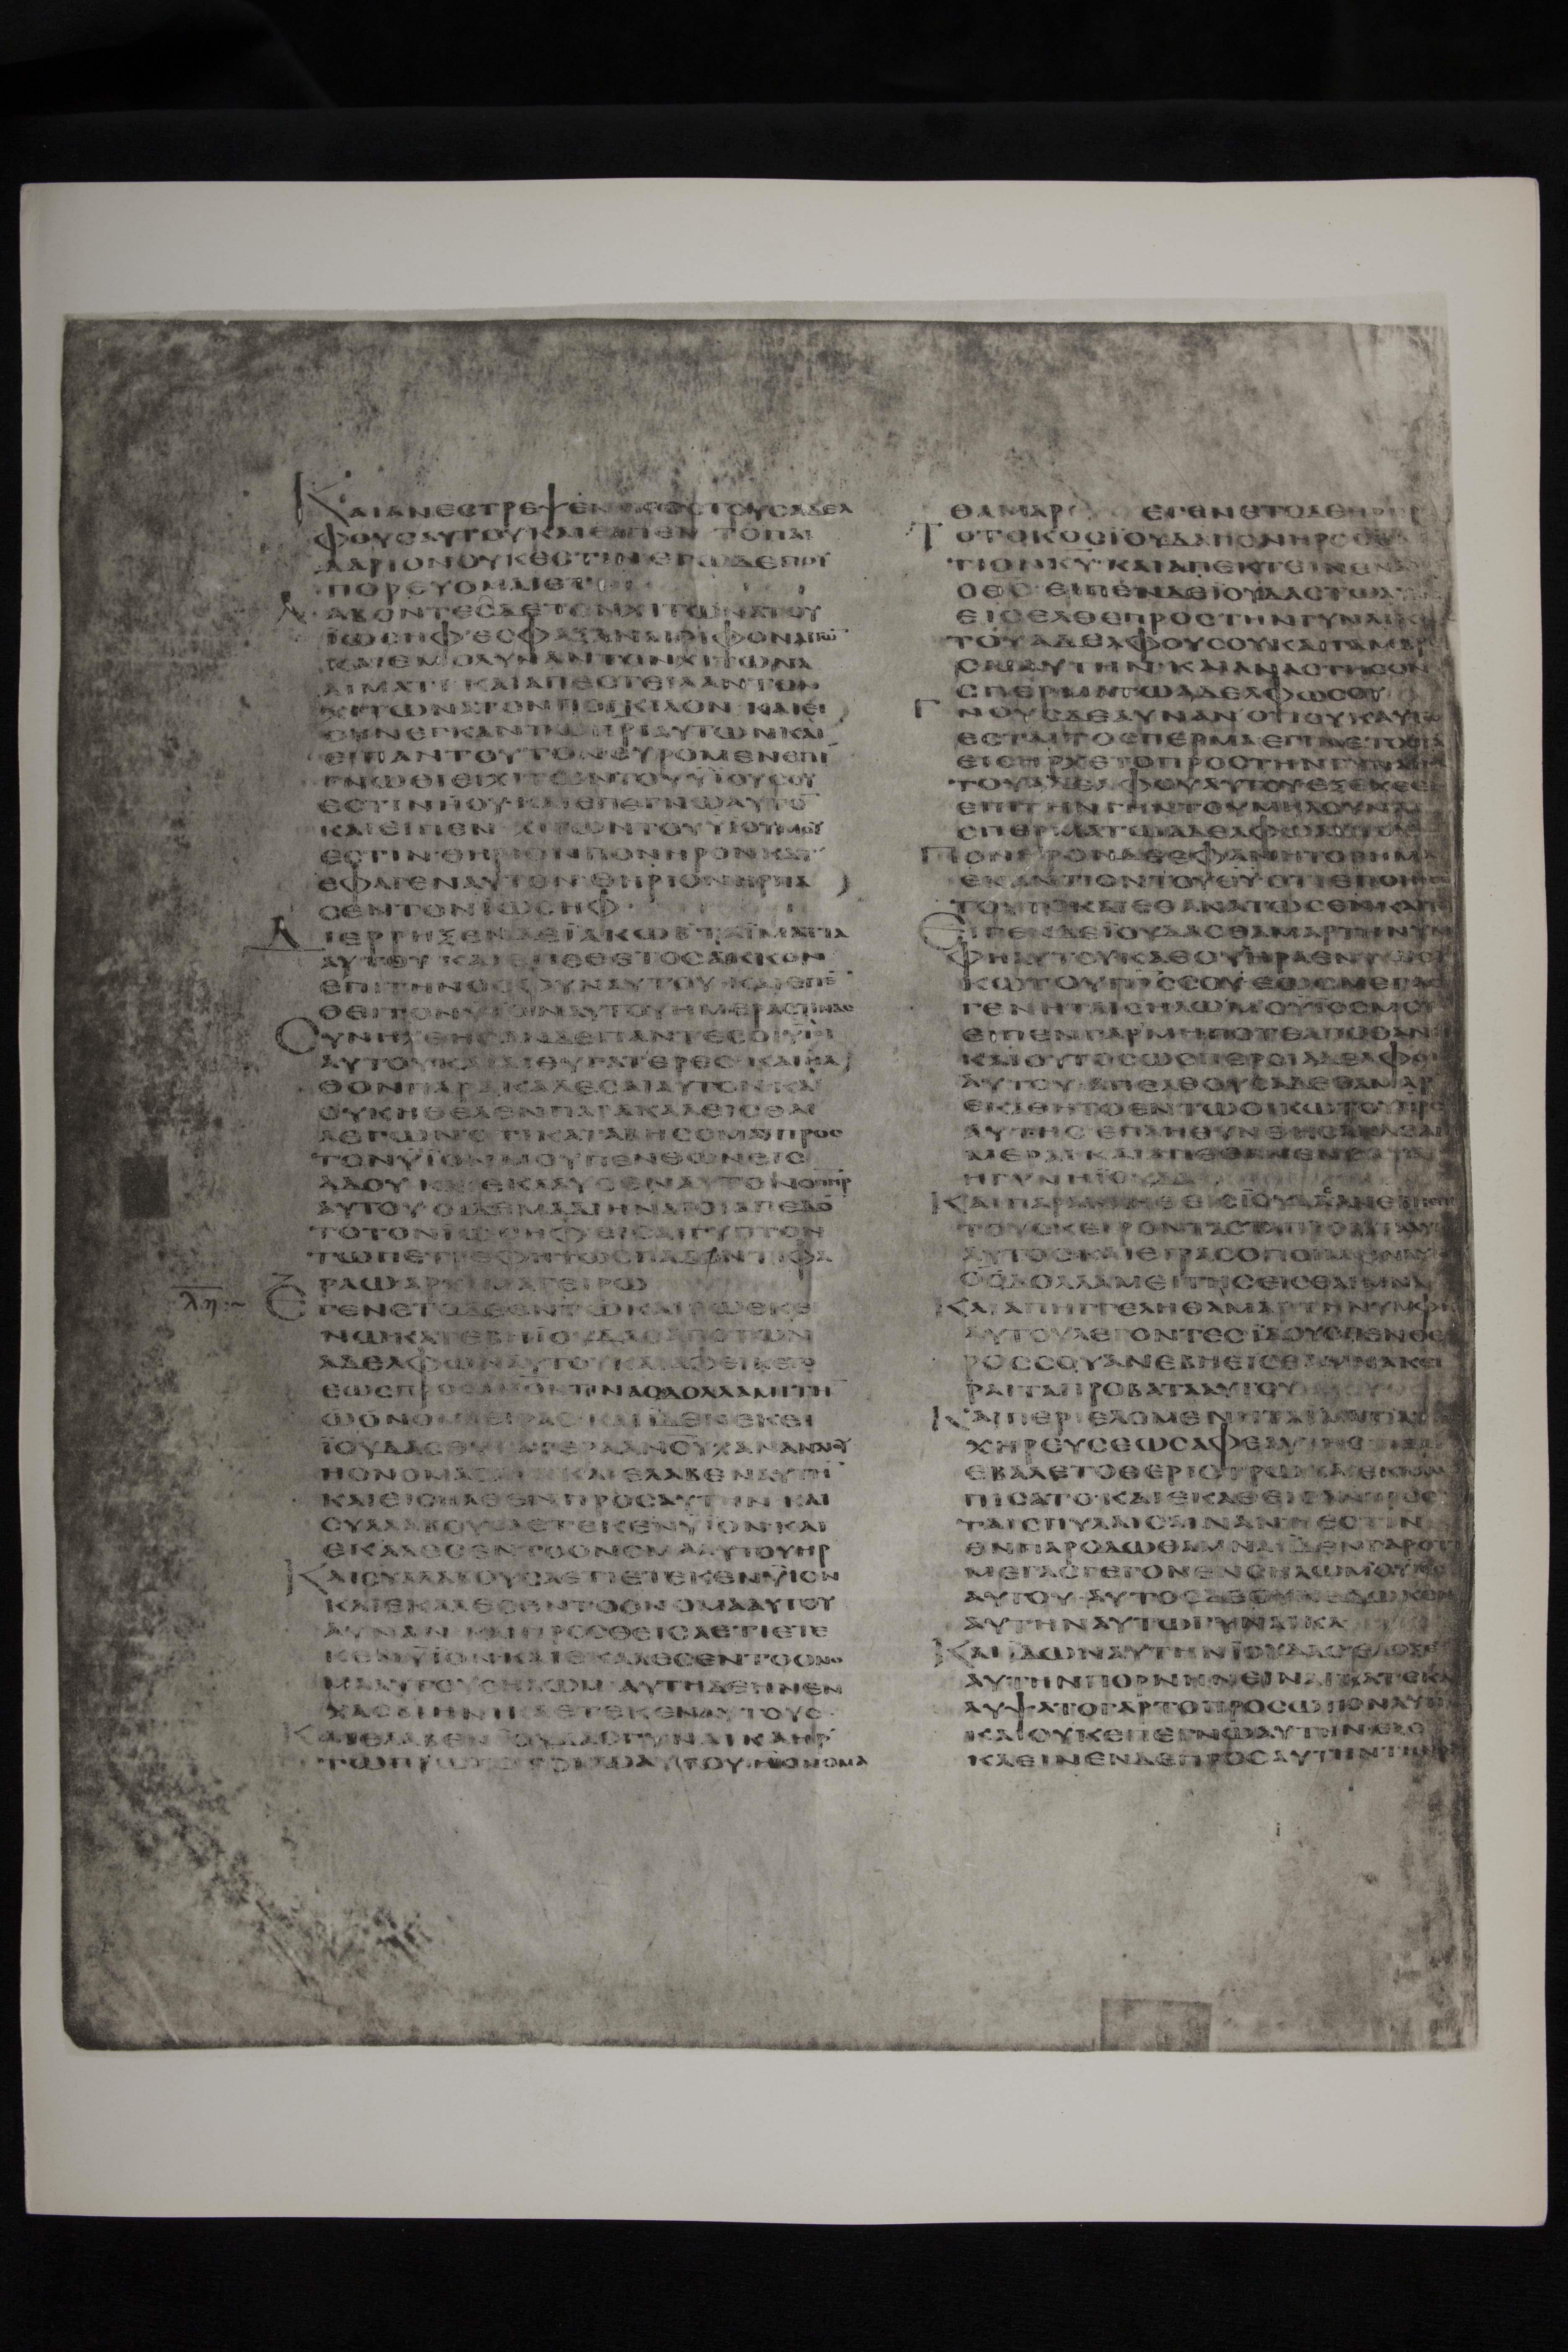 ΚΑΙΑΝΕϹΤΡΕΨΕΝ ΠΡΟϹΤΟΥϹΑΔΕΛ
ΦΟΥϹΑΥΤΟΥΚΑΙΕΙΠΕΝ ΤΟΠΑΙ
ΔΑΡΙΟΝΟΥΚΕϹΤΙΝΕΓΩΔΕΠΟΥ
ΠΟΡΕΥΟΜΑΙΕΤΙ
ΛΑΒΟΝΤΕϹΔΕΤΟΝΧΙΤΩΝΑΤΟΥ
ΪΩϹΗΦΕϹΦΑΞΑΝΕΡΙΦΟΝΑΙΓΩ̅
ΚΑΙΕΜΟΛΥΝΑΝΤΟΝΧΙΤΩΝΑ
ΑΙΜΑΤΙ ΚΑΙΑΠΕϹΤΕΙΛΑΝΤΟΝ
ΧΙΤΩΝΑΤΟΝΠΟΙΚΙΛΟΝ ΚΑΙΕΙ
ϹΗΝΕΓΚΑΝΤΩΠΡΙΑΥΤΩΝΚΑΙ
ΕΙΠΑΝΤΟΥΤΟΝΕΥΡΟΜΕΝΕΠΙ
ΓΝΩΘΙΕΙΧΙΤΩΝΤΟΥΫΙΟΥϹΟΥ
ΕϹΤΙΝΗΟΥΚΑΙΕΠΕΓΝΩΑΥΤΟ̅
ΚΑΙΕΙΠΕΝ ΧΙΤΩΝΤΟΥΫΙΟΥΜΟΥ
ΕϹΤΙΝΘΗΡΙΟΝΠΟΝΗΡΟΝΚΑΤ
ΕΦΑΓΕΝΑΥΤΟΝΘΗΡΙΟΝΗΡΠΑ
ϹΕΝΤΟΝΪΩϹΗΦ
ΔΙΕΡΡΗΞΕΝΔΕΪΑΚΩΒΤΑΪΜΑΤΙΑ
ΑΥΤΟΥ ΚΑΙΕΠΕΘΕΤΟϹΑΚΚΟΝ
ΕΠΙΤΗΝΟϹΦΥΝΑΥΤΟΥ ΚΑΙΕΠΕ̅
ΘΕΙΤΟΝΫΙΟΝΑΥΤΟΥΗΜΕΡΑϹΤΙΝΑϹ
ϹΥΝΗΧΘΗϹΑΝΔΕΠΑΝΤΕϹΟΙΫΙΟΙ
ΑΥΤΟΥΚΑΙΑΙΘΥΓΑΤΕΡΕϹ ΚΑΙΗΛ
ΘΟΝΠΑΡΑΚΑΛΕϹΑΙΑΥΤΟΝΚΑΙ
ΟΥΚΗΘΕΛΕΝΠΑΡΑΚΑΛΕΙϹΘΑΙ
ΛΕΓΩΝΟΤΙΚΑΤΑΒΗϹΟΜΑΙΠΡΟϹ
ΤΟΝΫΙΟΝΜΟΥΠΕΝΘΩΝΕΙϹ
ΑΔΟΥ ΚΑΙΕΚΛΑΥϹΕΝΑΥΤΟΝΟΠΗΡ
ΑΥΤΟΥΟΙΔΕΜΑΔΙΗΝΑΙΟΙΑΠΕΔΟ̅
ΤΟΤΟΝΪΩϹΗΦΕΙϹΑΙΓΥΠΤΟΝ
ΤΩΠΕΤΡΕΦΗΤΩϹΠΑΔΟΝΤΙΦΑ
ΡΑΩΑΡΧΙΜΑΓΕΙΡΩ
λη ΕΓΕΝΕΤΟΔΕΕΝΤΩΚΑΙΡΩΕΚΕΙ
ΝΩΚΑΤΕΒΗΪΟΥΔΑϹΑΠΟΤΩΝ
ΑΔΕΛΦΩΝΑΥΤΟΥΚΑΙΑΦΕΙΚΕΤΟ
ΕΩϹΠΡΟϹΑΝΟΝΤΙΝΑΟΔΟΛΛΑΜΙΤΗ̅
ΩΟΝΟΜΑΕΙΡΑϹ ΚΑΙΪΔΕΝΕΚΕΙ
ΪΟΥΔΑϹΘΥΓΑΤΕΡΑΑΝΟΥΧΑΝΑΝΑΙΟΥ
ΗΟΝΟΜΑ ΚΑΙΕΛΑΒΕΝΑΥΤΗ̅
ΚΑΙΕΙϹΗΛΘΕΝΠΡΟϹΑΥΤΗΝ ΚΑΙ
ϹΥΛΛΑΒΟΥϹΑΕΤΕΚΕΝΫΙΟΝΚΑΙ
ΕΚΑΛΕϹΕΝΤΟΟΝΟΜΑΑΥΤΟΥΗΡ
ΚΑΙϹΥΛΛΑΒΟΥϹΑΕΤΙΕΤΕΚΕΝΫΙΟΝ
ΚΑΙΕΚΑΛΕϹΕΝΤΟΟΝΟΜΑΑΥΤΟΥ
ΑΥΝΑΝ ΚΑΙΠΡΟϹΘΕΙϹΑΕΤΙΕΤΕ
ΚΕΝΫΙΟΝΚΑΙΕΚΑΛΕϹΕΝΤΟΟΝΟ
ΜΑΑΥΤΟΥϹΗΛΩΜ ΑΥΤΗΔΕΗΝΕΝ
ΧΑϹΒΙΗΝΙΚΑΕΤΕΚΕΝΑΥΤΟΥϹ
ΚΑΙΕΛΑΒΕΝΪΟΥΔΑϹΓΥΝΑΙΚΑΗΡ
ΤΩΠΡΩΤΟΤΟΚΩΑΥΤΟΥ ΗΟΝΟΜΑ
ΘΑΜΑΡ ΕΓΕΝΕΤΟΔΕΗΡ
ΤΟΤΟΚΟϹΪΟΥΔΑΠΟΝΗΡΟϹ
ΤΙΟΝΚΥ ΚΑΙΑΠΕΚΤΕΙΝΕΝ
ΟΘϹ ΕΙΠΕΝΔΕΪΟΥΔΑϹΤΩΑΥ
ΕΙϹΕΛΘΕΠΡΟϹΤΗΝΓΥΝΑΙΚΑ
ΤΟΥΑΔΕΛΦΟΥϹΟΥΚΑΙΓΑΜΒΡ
ϹΑΙΑΥΤΗΝ ΚΑΙΑΝΑϹΤΗϹΟΝ
ϹΠΕΡΜΑΤΩΑΔΕΛΦΩϹΟΥ
ΓΝΟΥϹΔΕΑΥΝΑΝ ΟΤΙΟΥΚΑΥΤΩ
ΕϹΤΑΙΤΟϹΠΕΡΜΑΕΓΙΝΕΤΟΟΤΑ
ΕΙϹΗΡΧΕΤΟΠΡΟϹΤΗΝΓΥΝΑΙΚΑ
ΤΟΥΑΔΕΛΦΟΥΑΥΤΟΥΕΞΕΧΕΕ
ΕΠΙΤΗΝΓΗΝΤΟΥΜΗΔΟΥΝΑΙ
ϹΠΕΡΜΑΤΩΑΔΕΛΦΩΑΥΤΟΥ
ΠΟΝΗΡΟΝΔΕΕΦΑΝΗΤΟΡΗΜΑ
ΕΝΑΝΤΙΟΝΤΟΥΘΥ ΟΤΙΕΠΟΙΗ
ΤΟΥΤΟΚΑΙΕΘΑΝΑΤΩϹΕΝΚΑΙ
ΕΙΠΕΝΔΕΪΟΥΔΑϹΘΑΜΑΡΤΗΝΥΜ
ΦΗΑΥΤΟΥΚΑΘΟΥΧΗΡΑΕΝΤΩΟΙ
ΚΩΤΟΥΠΡϹϹΟΥΕΩϹΜΕΓΑϹ
ΓΕΝΗΤΑΙϹΗΛΩΜΟΥΪΟϹΜΟΥ
ΕΙΠΕΝΓΑΡΜΗΠΟΤΕΑΠΟΘΑΝΗ
ΚΑΙΟΥΤΟϹΩϹΠΕΡΟΙΑΔΕΛΦΟΙ
ΑΥΤΟΥ ΑΠΕΛΘΟΥϹΑΔΕΘΑΜΑΡ
ΕΚΑΘΗΤΟΕΝΤΩΟΙΚΩΤΟΥΠΡϹ
ΑΥΤΗϹ ΕΠΛΗΘΥΝΘΗϹΑΝΔΕΑΙ
ΜΕΡΑΙ ΚΑΙΑΠΕΘΑΝΕΝ
ΗΓΥΝΗΪΟΥΔΑ
ΚΑΙΠΑΡΑΚΛΗΘΕΙϹΪΟΥΔΑϹΑΝΕΒΗΕΠΙ
ΤΟΥϹΚΕΙΡΟΝΤΑϹΤΑΠΡΟΒΑΤΑ
ΑΥΤΟϹΚΑΙΕΙΡΑϹΟΠΟΙΜΗΝ
ΟΟΔΟΛΛΑΜΕΙΤΗϹΕΙϹΘΑΜΝΑ
ΚΑΙΑΠΗΓΓΕΛΗΘΑΜΑΡΤΗΝΥΜΦΗ
ΑΥΤΟΥΛΕΓΟΝΤΕϹΪΔΟΥΟΠΕΝΘΕ
ΡΟϹϹΟΥΑΝΕΒΗΕΙϹΘΑΜΝΑΚΕΙ
ΡΑΙΤΑΠΡΟΒΑΤΑΑΥΤΟΥ
ΚΑΙΠΕΡΙΕΛΟΜΕΝΗΤΑΪΜΑΤΙΑ
ΧΗΡΕΥϹΕΩϹΑΦΕΑΥΤΗϹ
ΕΒΑΛΕΤΟΘΕΡΙϹΤΡΟΝΚΑΙΕΚΑΛΛΩ
ΠΙϹΑΤΟ ΚΑΙΕΚΑΘΕΙϹΕΝΠΡΟϹ
ΤΑΙϹΠΥΛΑΙϹΑΙΝΑΝΗΕϹΤΙΝ
ΕΝΠΑΡΟΔΩΘΑΜΝΑ ΪΔΕΝΓΑΡΟΤΙ
ΜΕΓΑϹΓΕΓΟΝΕΝϹΗΛΩΜΟΥΙΟϹ
ΑΥΤΟΥ ΑΥΤΟϹΔΕΟΥΚΕΔΩΚΕΝ
ΑΥΤΗΝΑΥΤΩΓΥΝΑΙΚΑ
ΚΑΙΪΔΩΝΑΥΤΗΝΪΟΥΔΑϹΕΔΟΞΕΝ
ΑΥΤΗΝΠΟΡΝΗΝΕΙΝΑΙ ΚΑΤΕΚΑ
ΛΥΨΑΤΟΓΑΡΤΟΠΡΟϹΩΠΟΝΑΥΤΗϹ
ΚΑΙΟΥΚΕΠΕΓΝΩΑΥΤΗΝ
ΚΛΕΙΝΕΝΔΕΠΡΟϹΑΥΤΗΝΤΗΝ